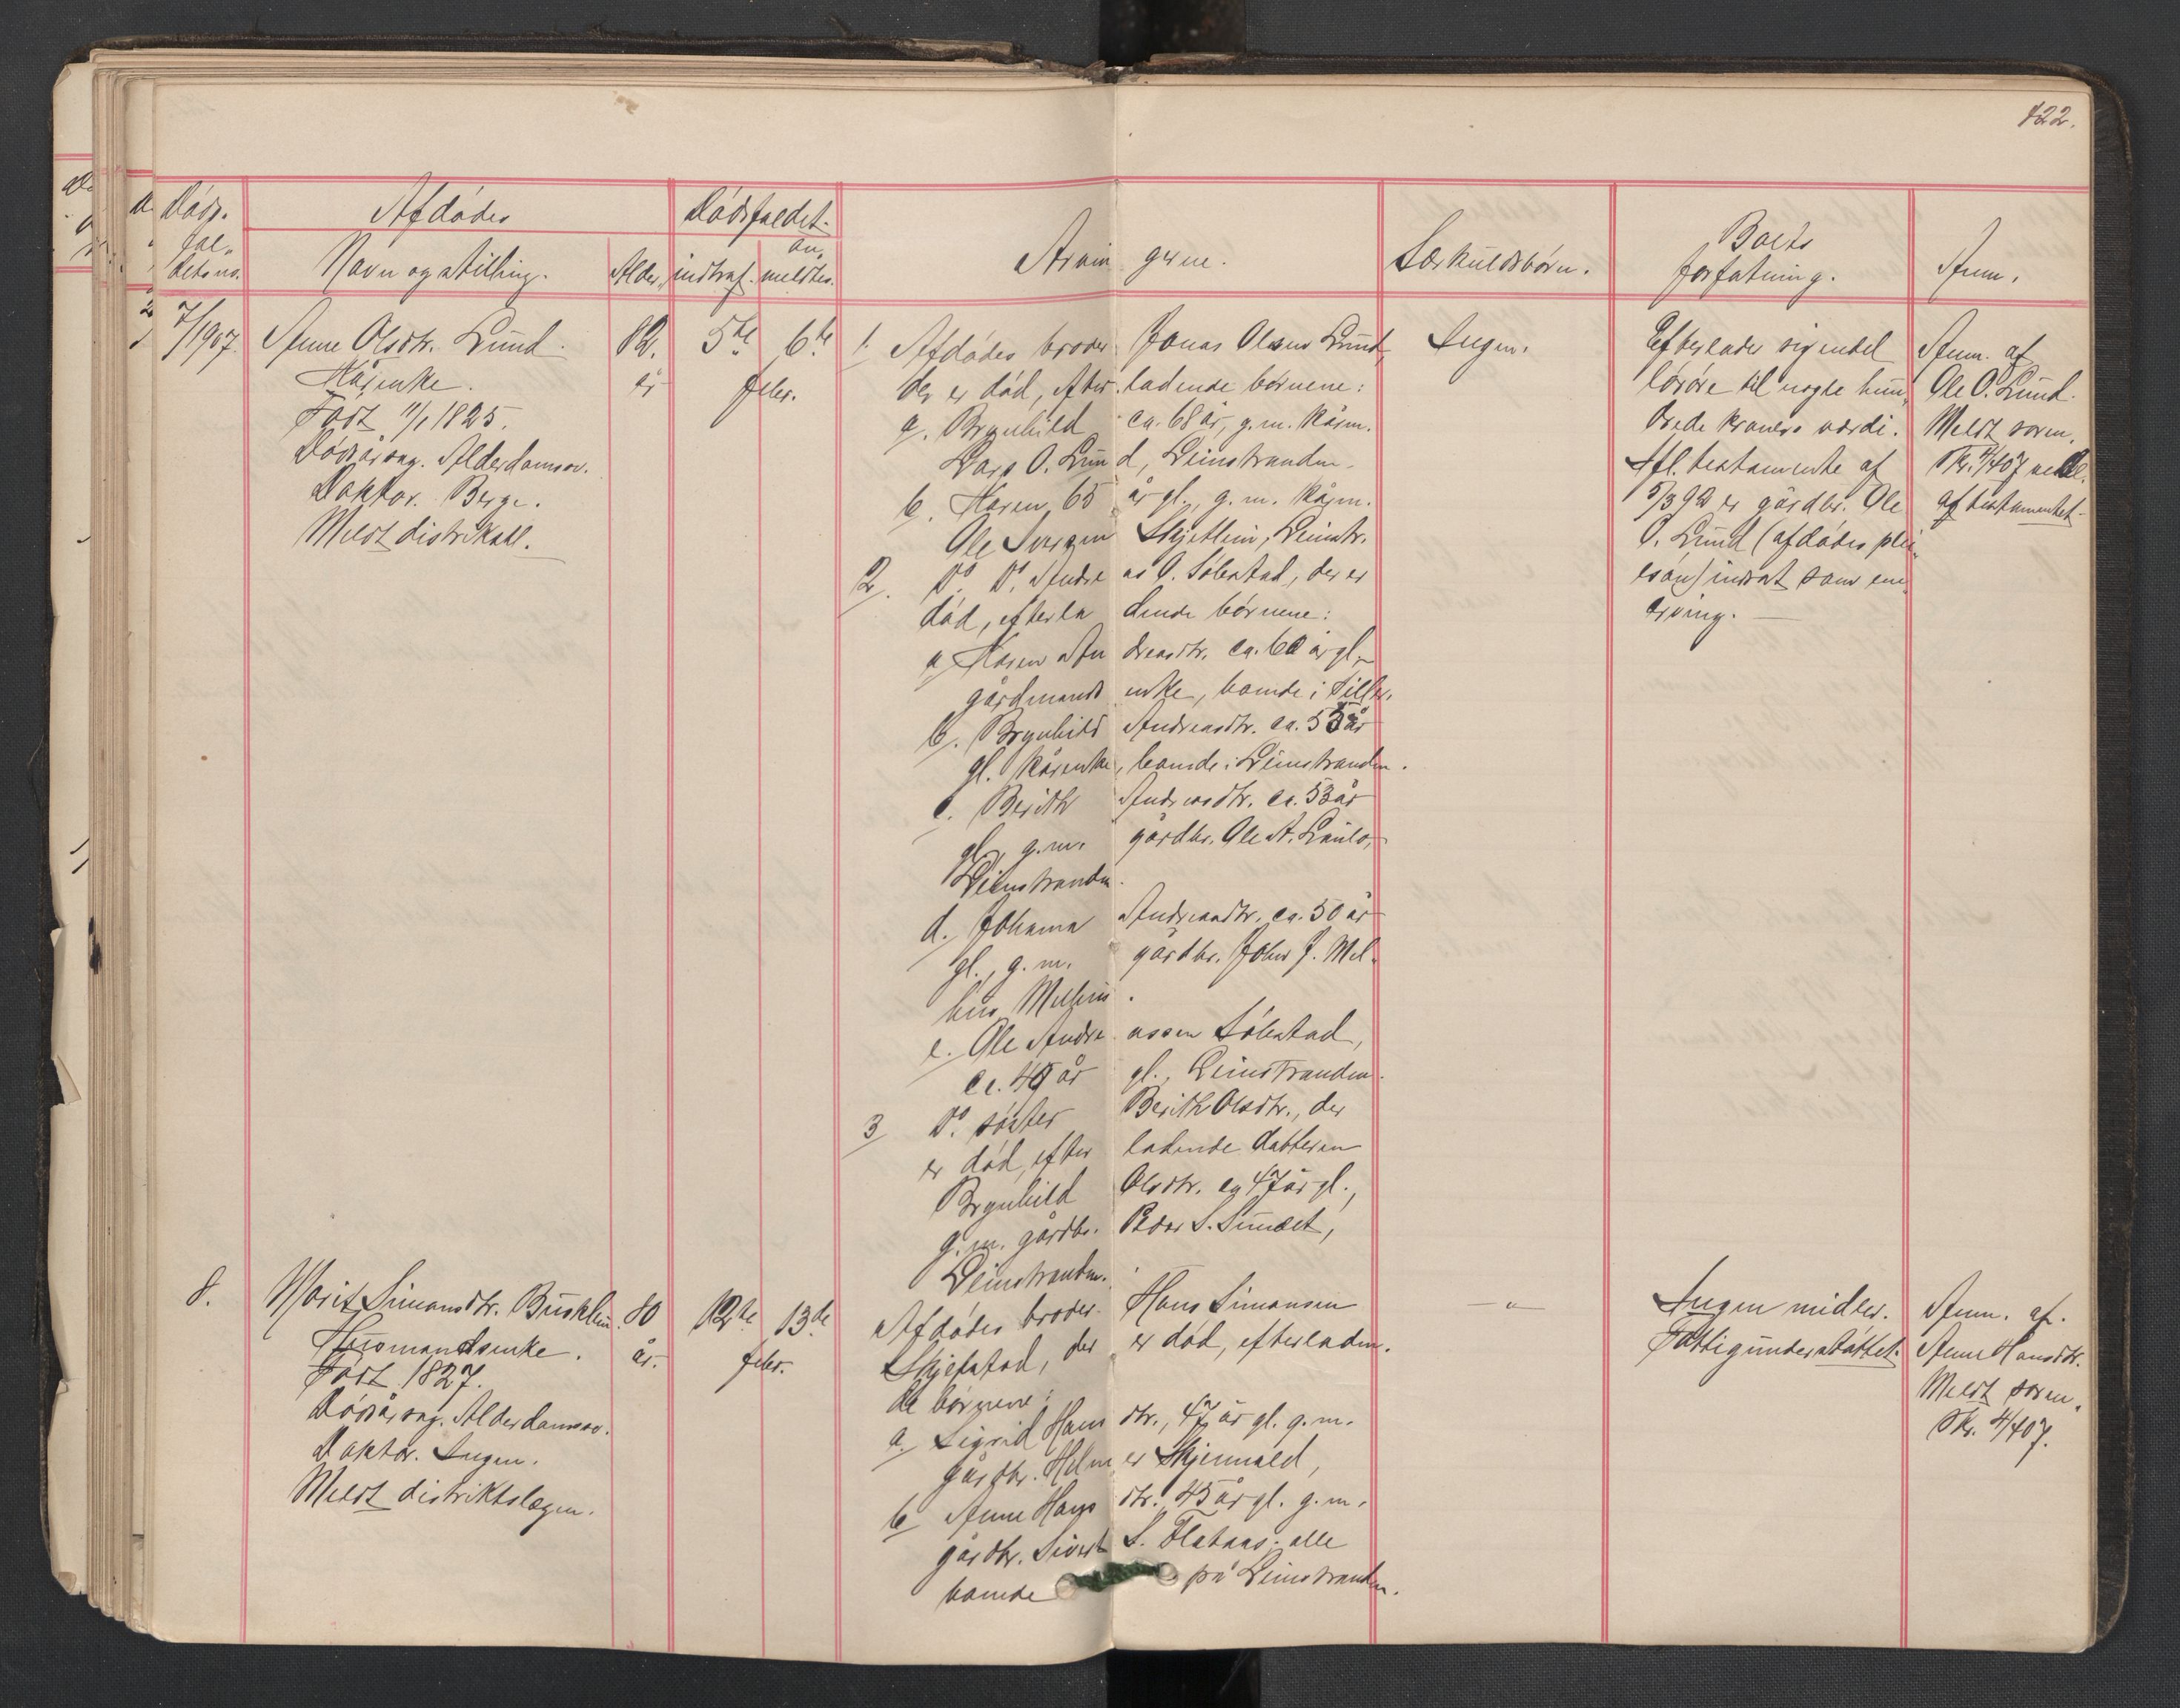 122.
Døds-
fal-
dets no.
Afdødes
Navn og stilling.
Alder.
Dødsfaldet
indtraf.
an-
meldtes.
Arvingerne.
Særkuldsbørn.
Boets
forfatning.
Anm.
7/1907.
Anne Olsdtr. Lund.
Kårenke.
Født 11/1 1825.
Dødsårsag. Alderdomssv.
Doktor. Berge.
Meldt distriktsl.
82.
år
5te
6te
febr.
1. Afdødes broder Jonas Olsen Lund,
der er død, efterladende børnene:
a. Brynhild ca. 68 år, g.m. kårm.
Lars O. Lund, Leinstranden.
b. Karen, 65 år gl., g.m. kårm.
Ole Iversen Skjetlein, Leinstr.
2. Do. Do. Andreas O. Solstad, der er
død, efterladende børnene:
a. Karen Andreasdtr. ca. 60 år gl.,
gårdmands enke, boende i Tiller.
b. Brynhild Andreasdtr. ca. 55 år
gl. kårenke, boende i Leinstranden.
c. Berith Andreasdtr. ca. 53 år
gl., g.m. gårdbr. Ole A.
Leinstranden.
d. Johanna Andreasdtr. ca. 50 år
gl., g.m. gårdbr. John J. Mel-
hus, Melhus.
e. Ole Andreassen Solstad,
ca. 49 år gl., Leinstranden.
3 Do. søster Berith Olsdtr., der
er død, efterladende datteren
Brynhild Olsdtr. ca 47 år gl.,
g.m. gårdbr. Peder S. Sundet,
Leinstranden.
Ingen.
Efterlader sig endel
løsøre til nogle hun-
drede kroners værdi.
Ifl. testamente af
5/3 92 er gårdbr. Ole
O. Lund (afdødes plei-
esøn) indsat som ene
arving.
Anm. af
Ole O. Lund.
Meldt soren-
skr. 4/4 07 vedl.
af testamentet.
8.
Marit Simonsdtr. Busklein.
Husmandsenke.
Født 1827.
Dødsårsag. Alderdomssv.
Doktor. Ingen.
Meldt distriktslægen.
80
år.
12te
13de
febr.
Afdødes broder Hans Simonsen
Skjefstad, der er død, efterladen-
de børnene:
a. Sigrid Hansdtr., 47 år gl. g.m.
gårdbr. Helmer Skjenvald,
b. Anne Hansdtr. 45 år gl. g.m.
gårdbr. Sivert S. Flataas; alle
boende på Leinstranden.
— " —
Ingen midler.
Fattigunderstøttet.
Anm. af.
Anne Hansdtr.
Meldt soren-
skr. 4/4 07.